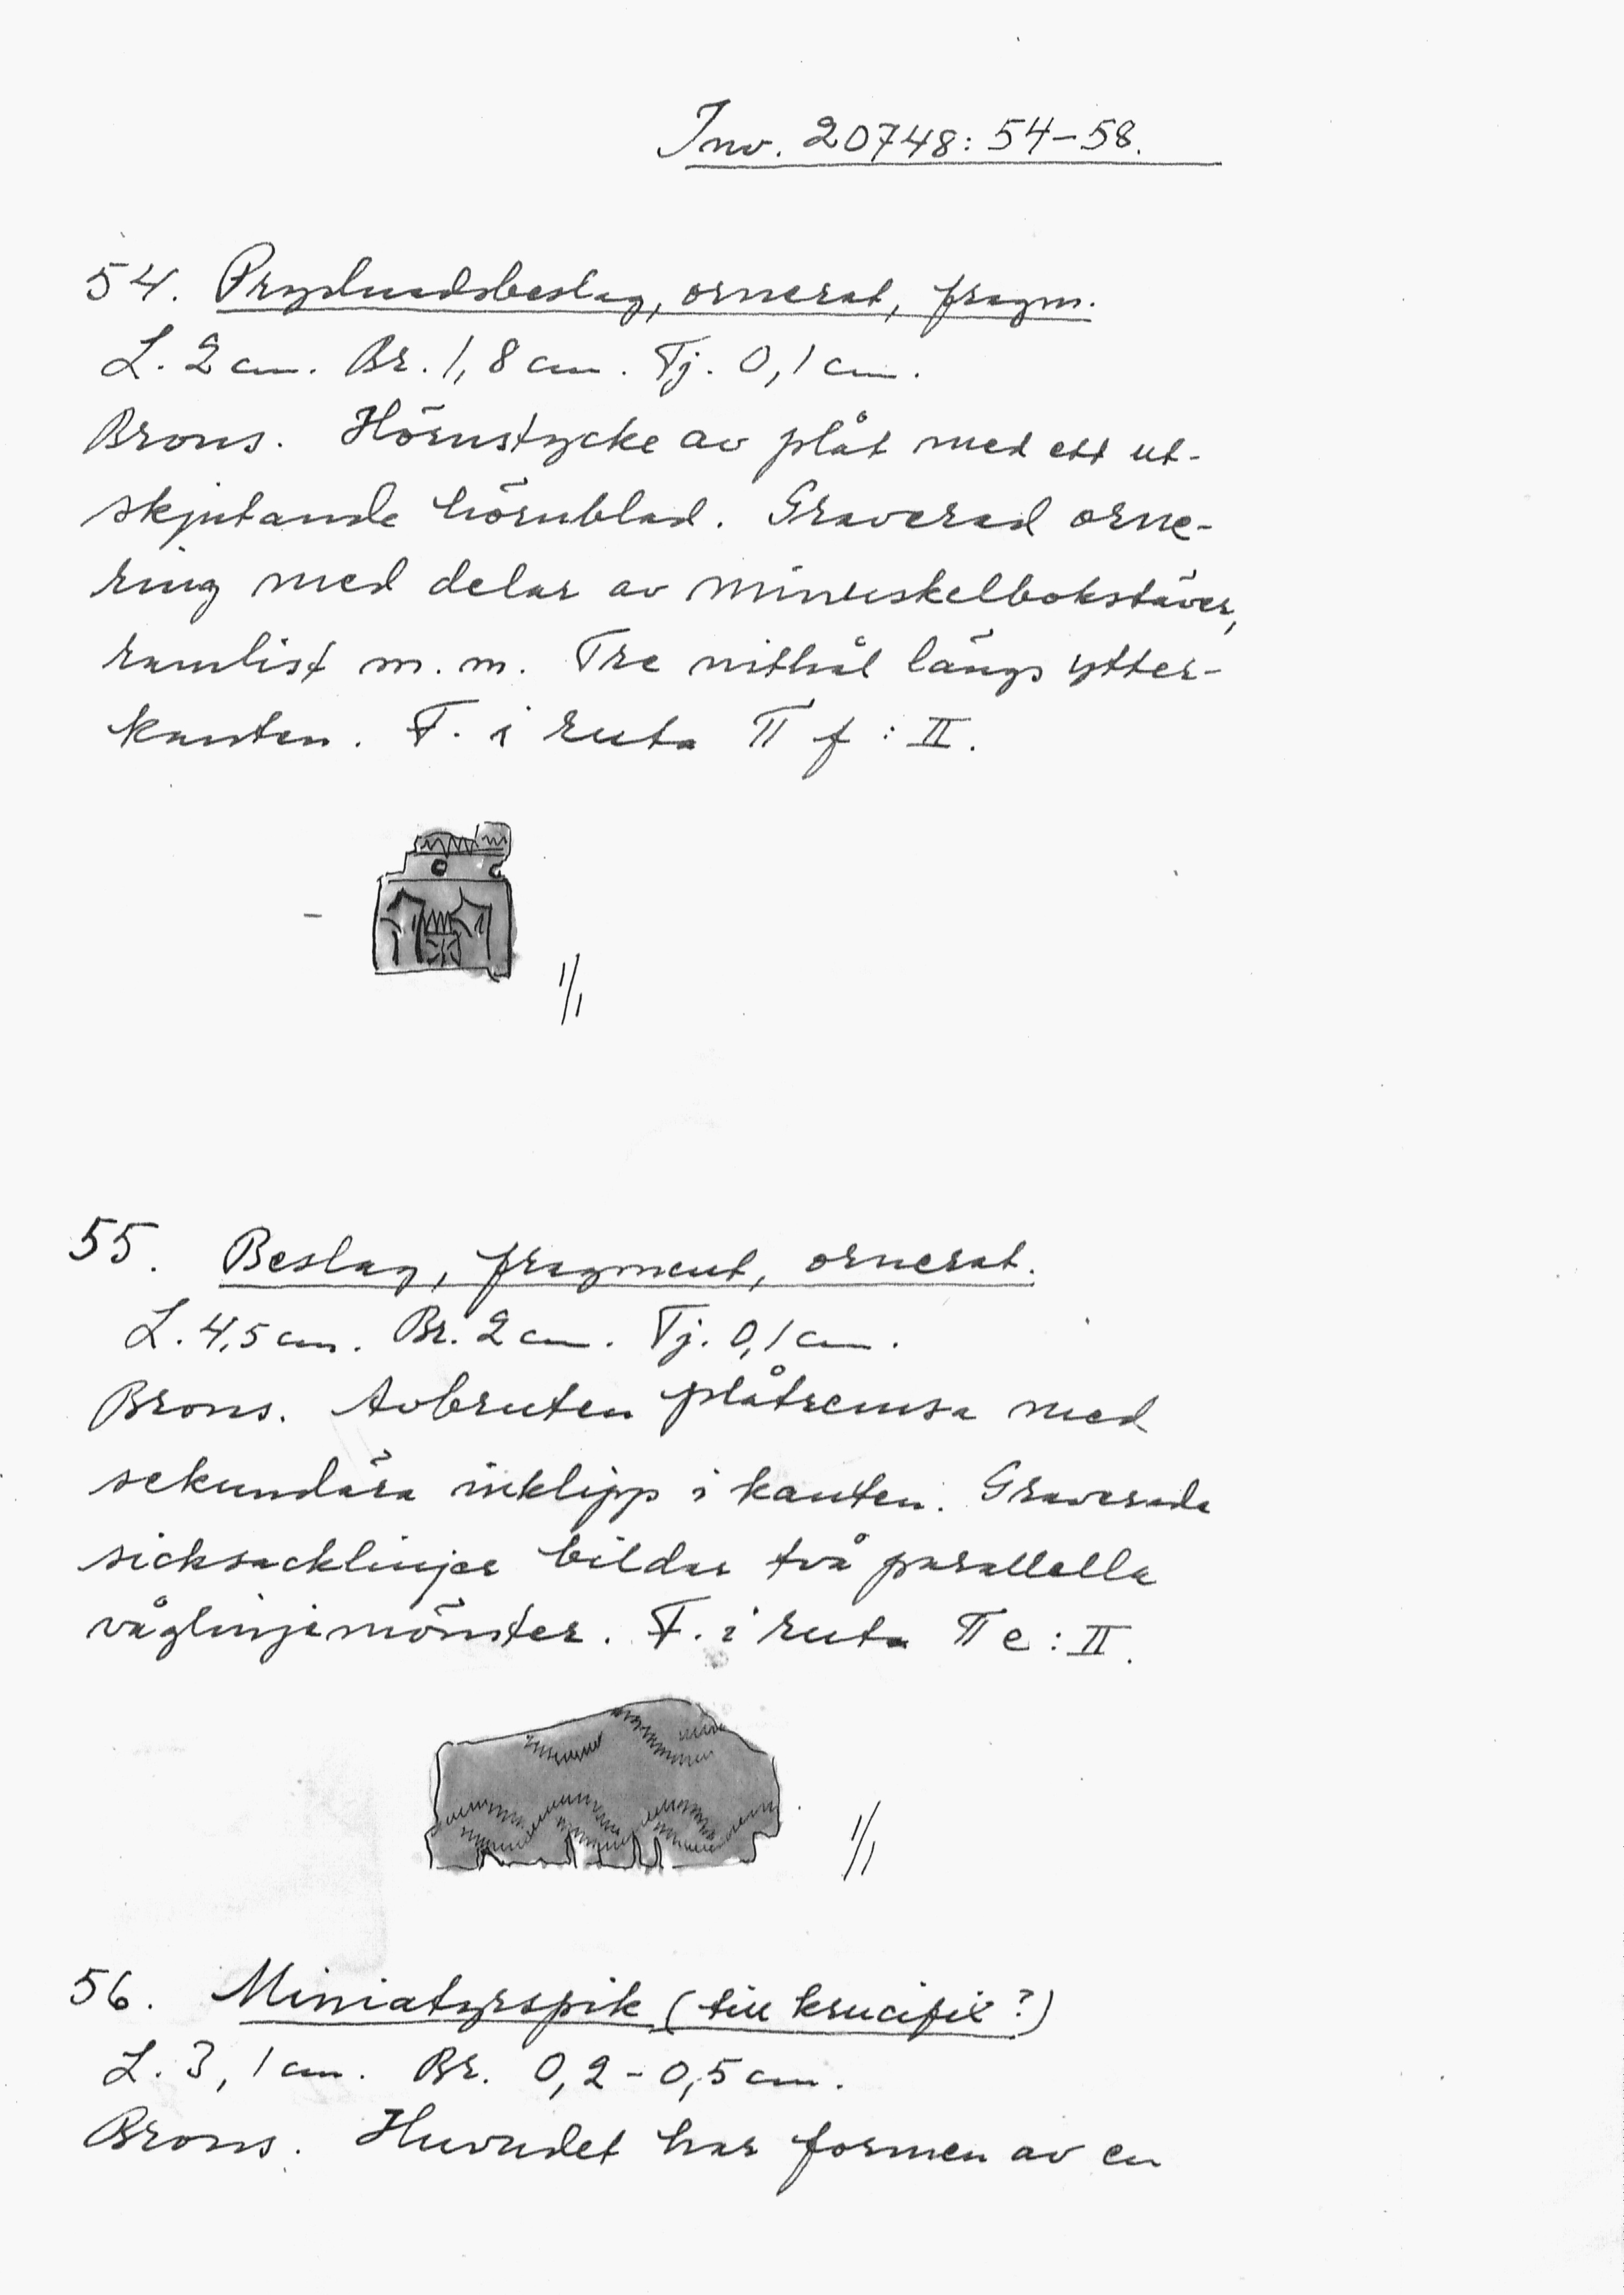 Inv. 20748: 54-58.
54. Prydnadsbeslag, ornerat, fragm.
L. 2 cm. Br. 1,8 cm. Tj. 0,1 cm.
Brons. Hörnstycke av plåt med ett ut-
skjutande hörnblad. Graverad orne-
ring med delar av minuskelbokstäver,
ramlist m.m. Tre nithål längs ytter-
kanten. F. i ruta II f : II.
1/1
55. Beslag, fragment, ornerat.
L. 4,5 cm. Br. 2 cm. Tj. 0,1 cm.
Brons. Avbruten plåtremsa med
sekundära inklipp i kanten. Graverade
sicksacklinjer bildar två parallella
våglinjemönster. F. i ruta II e : II.
1/1
56. Miniatyrspik (till krucifix?)
L. 3,1 cm. Br. 0,2-0,5 cm.
Brons. Huvudet har formen av en